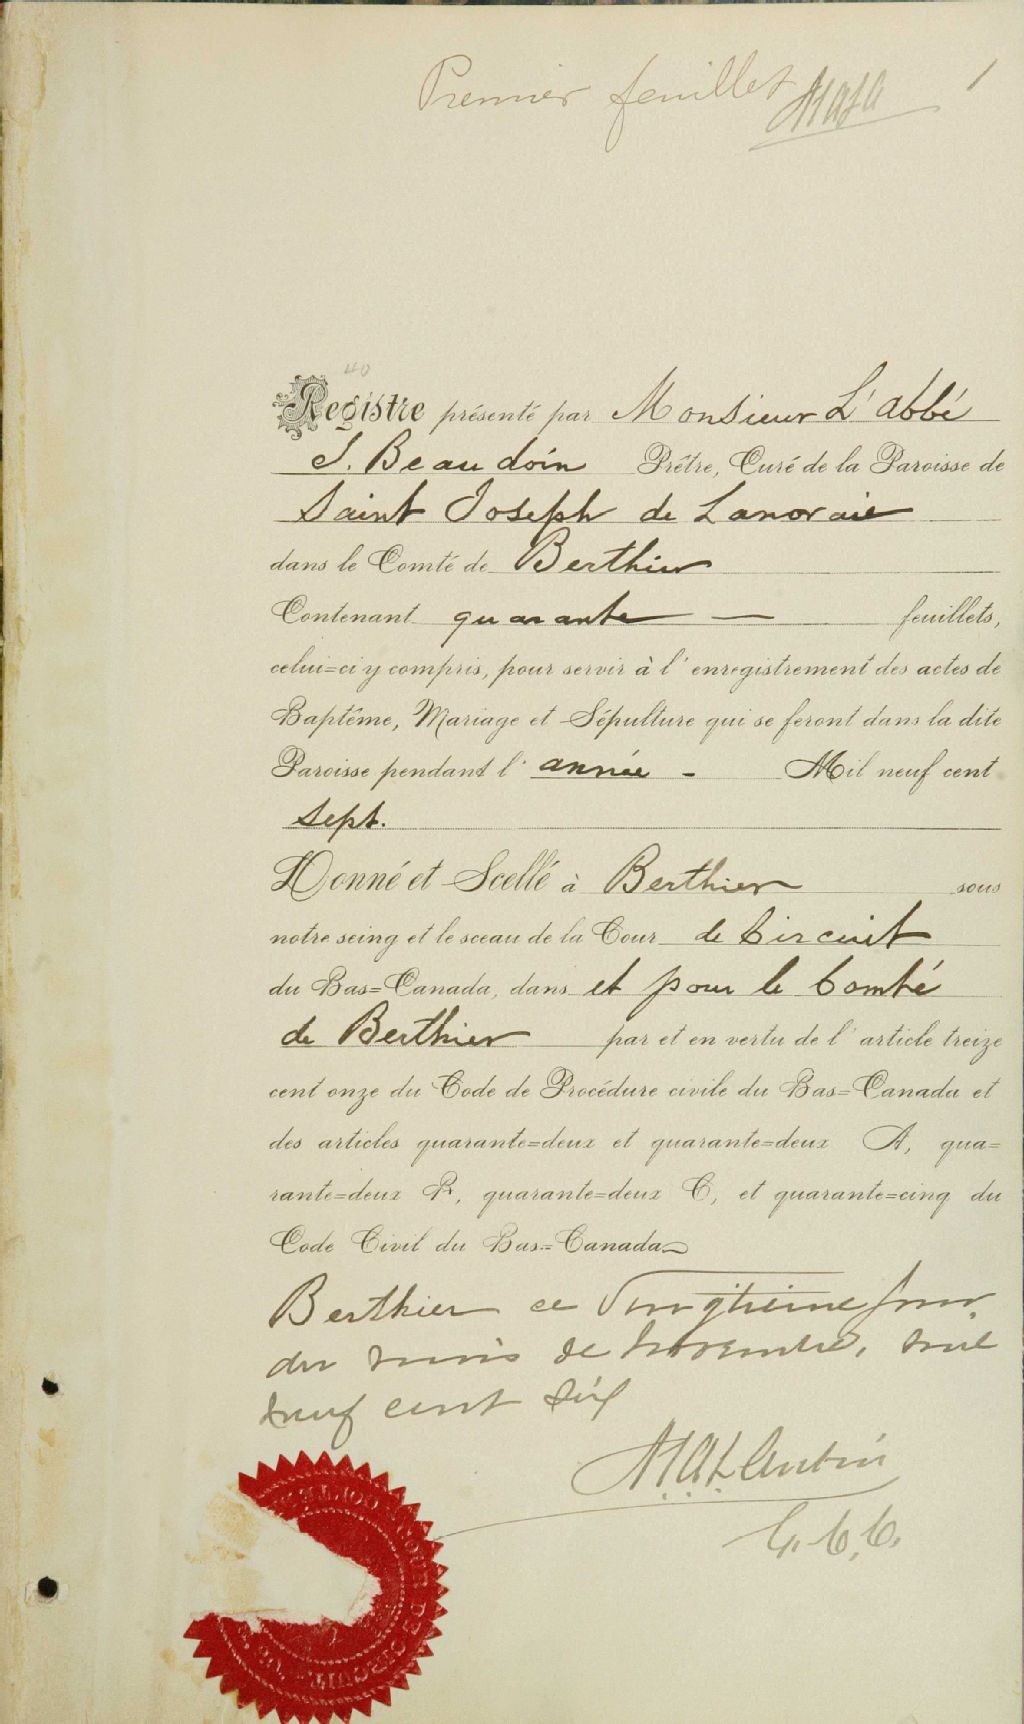 Premier feuillet 1
40
Registre présenté par Monsieur L'abbé
J. Beaudoin Prêtre, Curé de la Paroisse de
Saint Joseph de Lanoraie
dans le Comté de Berthier
Contenant quarante — feuillets,
celui=ci y compris, pour servir à l'enregistrement des actes de
Baptême, Mariage et Sépulture qui se feront dans la dite
Paroisse pendant l'année - Mil neuf cent
sept.
Donné et Scellé à Berthier sous
notre seing et le sceau de la Cour de Circuit
du Bas=Canada, dans et pour le Comté
de Berthier par et en vertu de l'article treize
cent onze du Code de Procédure civile du Bas=Canada et
des articles quarante=deux et quarante=deux A, qua=
rante=deux B, quarante=deux C, et quarante=cinq du
Code Civil du Bas=Canada
Berthier ce Vingtieme jour
du mois de novembre, mil
neuf cent six
G.C.C.